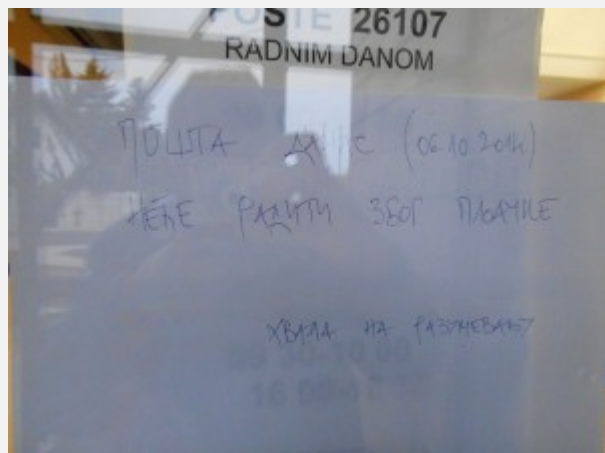 POSTE 26107
RADNIM DANOM
ПОШТА ДАНАС (06.10.2014)
НЕЋЕ РАДИТИ ЗБОГ ПЉАЧКЕ
ХВАЛА НА РАЗУМЕВАЊУ